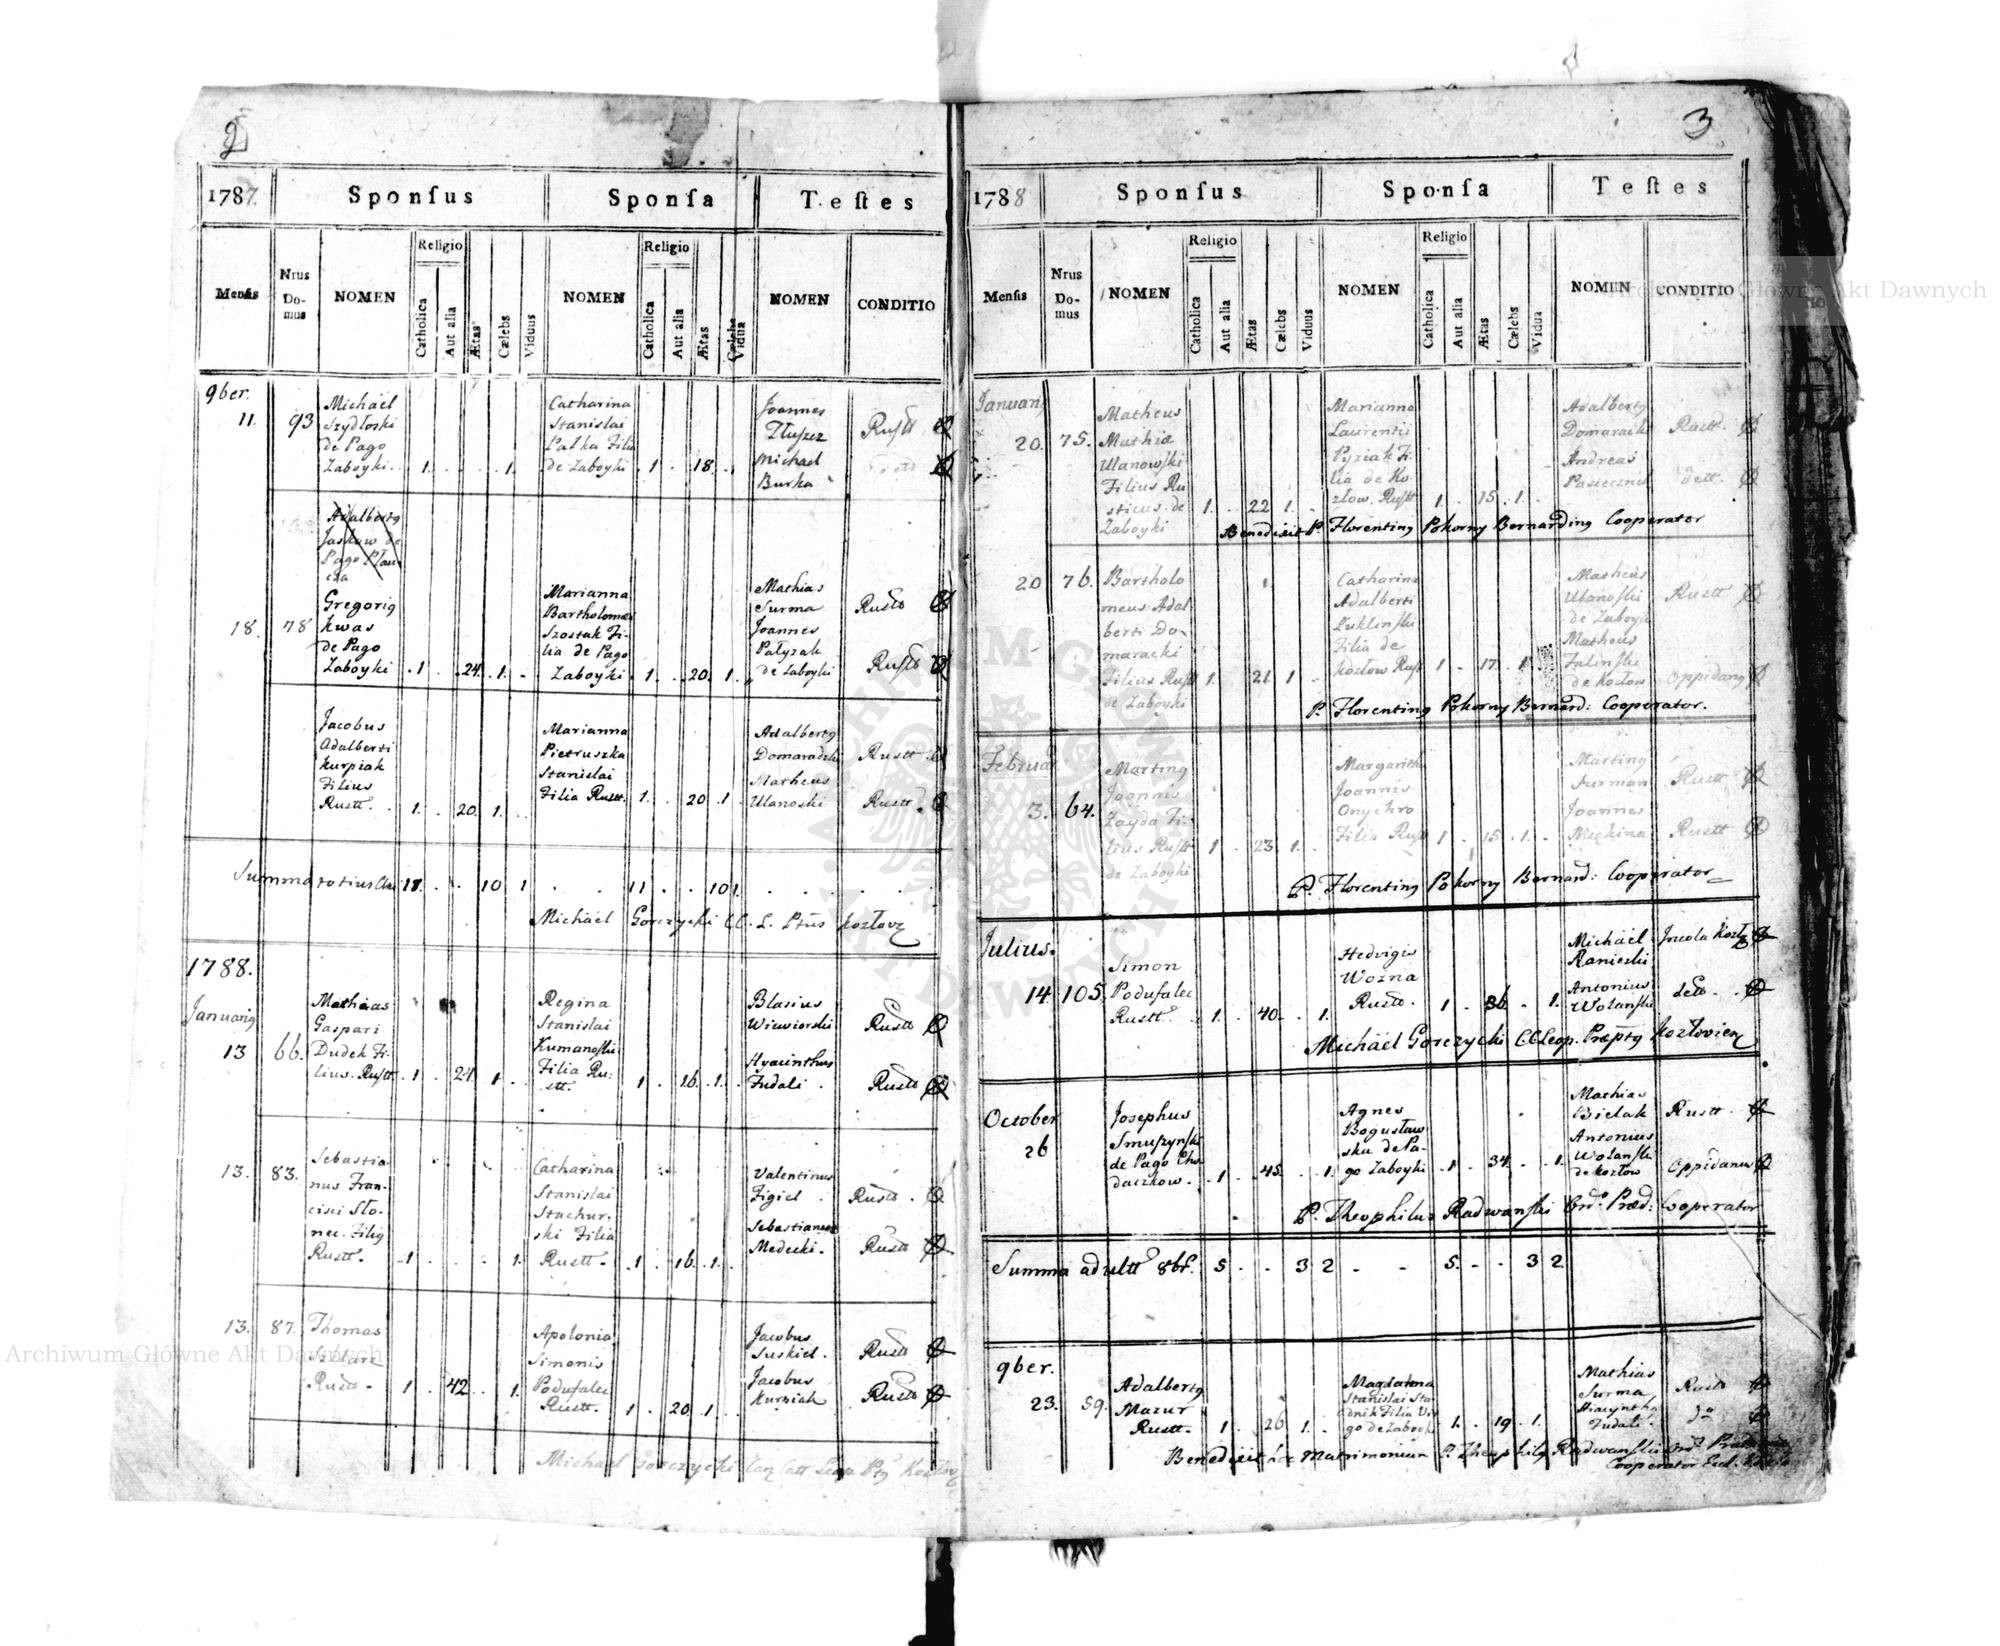 2
1787.
Sponſus
Sponſa
Teſtes
Menſis
Nrus Domus
NOMEN
Religio
Catholica
Aut alia
Ætas
Cælebs
Viduus
NOMEN
Religio
Catholica
Aut alia
Ætas
Cælebs
Vidua
NOMEN
CONDITIO
9ber.
11. 93
Michael
Szydłoski
de Pago
Zaboyki. 1. . . . 1.
Catharina
Stanislai
Pałka Filia
de Zaboyki . 1 . 18. .
Joannes
Tłuszcz
Michael
Burka
Rustt
detto
Adalbertg
Jaskow de
Pago
18. 78
Gregorig
Kwas
de Pago
Zaboyki . 1 . . 24. . 1. .
Marianna
Bartholomæi
Szostak Fi-
lia de Pago
Zaboyki . 1 . . 20. 1.
Mathias
Surma
Joannes
Pałyzak
de Zaboyki
Rustt
Rustt
Jacobus
Adalberti
Kurpiak
Filius
Rustt. . 1. . 20. 1. .
Marianna
Pietruszka
Stanislai
Filia Rustt. 1. . 20 .1.
Adalbertg
Domaradzki
Matheus
Ulanoski
Rustt.
Rustt.
Summa totius 11. . . 10 1 . . 11 . . 10 1. . . .
Michäel Gorczycki CC. L. Ptus Kozłov
1788.
Januarig
13 66.
Mathias
Gaspari
Dudek Fi-
lius. Rustt . 1 . 24 1 . .
Regina
Stanislai
Kumanoski
Filia Ru:
stt. 1 . 16 .1. .
Blasius
Wiewiorski
Hyacinthus
Fudali .
Rustt
Rustt
13. 83.
Sebastia-
nus Fran-
cisci Sło-
nec. Filig
Rustt. . 1 . . . 1.
Catharina
Stanislai
Stachur-
ski Filia
Rustt. . 1 . 16 .1. .
Valentinus
Figiel .
Sebastianus
Medecki.
Rustt .
Rustt
13. 87.
Thomas
Rustt. 1 . 42 . . 1.
Apolonia
Simonis
Podufalei
Rustt. 1 . 20 .1 . .
Jacobus
Suskiel.
Jacobus
Kurpiak
Rustt
Rustt
Michael Gorczycki Can Catt Leop. Ptg Kozłov
3
1788
Sponſus
Sponſa
Teſtes
Menſis
Nrus Domus
NOMEN
Religio
Catholica
Aut alia
Ætas
Cælebs
Viduus
NOMEN
Religio
Catholica
Aut alia
Ætas
Cælebs
Vidua
NOMEN
CONDITIO
Januarig
20. 75.
Matheus
Mathiæ
Ulanowski
Filius Ru
sticus de
Zaboyki 1. . 22 1. .
Marianna
Laurentii
Pyziak Fi-
lia de Ko-
złow. Rustt 1 . 15. 1. .
Adalbertg
Domaracki
Andreas
Pasiecznik
Rustt.
dett.
Benedixit P. Florenting Pokorny Bernarding Cooperator
20 76.
Bartholo
meus Adal-
berti Do-
maracki
Filius Rustt 1. . 21 1 .
de Zaboyki
Catharina
Adalberti
Łuklinski
Filia de
Kozłow Rustt 1 . 17. . 1.
Matheus
Ulanoski
de Zaboyk
Matheus
Falinski
de Kozłow
Rustt
Oppidang
P. Florenting Pokorny Bernard: Cooperator.
Februar.
3. 64.
Marting
Joannis
Zayda Fi-
lius Rustt 1 . 23 . 1. .
de Zaboyki
Margarith
Joannis
Onychro
Filia Rustt 1 . 15 . 1. .
Marting
Surman
Joannes
Miękina
Rustt
Rustt
P. Florenting Pokorny Bernard: Cooperator
Julius.
14. 105.
Simon
Podufalec
Rustt. . 1. . 40. . 1.
Hedvigis
Wozna
Rustt. . 1 . 36 . 1.
Michäel
Ranieski
Antonius
Wolanski
Incola Kozł
detto .
Michäel Gorczycki CC Leop. Præptg Kozłovien
October
26
Josephus
Smuszynski
de Pago Cho
daczkow. . 1 . 45. . 1.
Agnes
Bogusław
ska de Pa-
go Zaboyki . 1 . 34 . . 1.
Mathias
Bielak
Antonius
Wolanski
de Kozłow
Rustt.
Oppidanus
P. Theophilus Radwanski Ord. Præd: Cooperator
Summa ad ultt 8br. 5 . . 3 2 . . 5. . . 3 2
9ber.
23. 59.
Adalbertg
Mazur
Rustt. . 1. . 26 . 1. .
Magdalena
Stanislai Sta-
dnik Filia Vi-
go de Zaboyk 1. . 19 . 1.
Mathias
Surma
Hiacynthg
Fudali.
Rustt
do
Benedixit hoc Matrimonium P. Theophilg Radwanski Ord. Præd
Cooperator Eccl.
Archiwum Główne Akt Dawnych
Archiwum Główne Akt Dawnych
ARCHIWUM GŁÓWNE AKT DAWNYCH